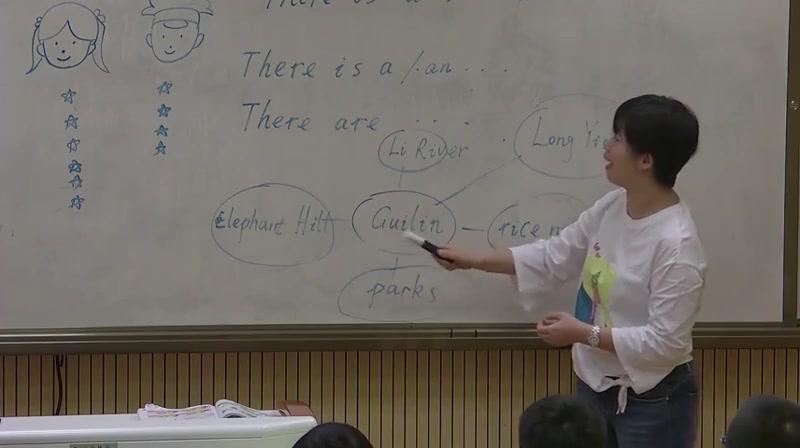 There is a
There is a / an ...
There are ...
Li River
Long
Elephant Hill
Guilin
rice
parks